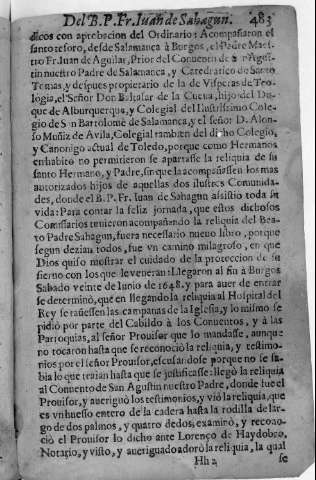 Del B. P. Fr. Iuan de Sahagun. 483
dicos con aprobacion del Ordinario: Acompañaron el
santo tesoro, desde Salamanca à Burgos, el Padre Maes-
tro Fr. Iuan de Aguilar, Prior del Conuento de S. Agus-
tin nuestro Padre de Salamanca, y Catedratico de Santo
Tomas, y despues propietario de la de Visperas de Teo-
logia, el Señor Don Baltasar de la Cueua, hijo del Du-
que de Alburquerque, y Colegial del Illustrissimo Cole-
gio de San Bartolome de Salamanca, y el señor D. Alon-
so Muñiz de Avila, Colegial tambien del dicho Colegio,
y Canonigo actual de Toledo, porque como Hermanos
en habito no permitieron se apartasse la reliquia de su
santo Hermano, y Padre, sin que la acompañassen los mas
autorizados hijos de aquellas dos ilustres Comunida-
des, donde el B. P. Fr. Iuan de Sahagun assistio toda su
vida: Para contar la feliz jornada, que estos dichosos
Comissarios tenieron acompañando la reliquia del Bea-
to Padre Sahagun, fuera necessario nueuo libro, porque
segun dezian todos, fue vn camino milagroso, en que
Dios quiso mostrar el cuidado de la proteccion de su
sieruo con los que le veneran: Llegaron al fin à Burgos
Sabado veinte de Iunio de 1648. y para auer de entrar
se determinò, que en llegando la reliquia al Hospital del
Rey se tañessen las campanas de la Iglesia, y lo mismo se
pidiò por parte del Cabildo à los Conuentos, y à las
Parroquias, al señor Prouisor que lo mandasse, aunque
no tocaron hasta que se reconociò la reliquia, y testimo-
nios por el señor Prouisor, escusandose porque no se sa-
bia lo que traian hasta que se justificasse: llegò la reliquia
al Conuento de San Agustin nuestro Padre, donde fue el
Prouisor, y aueriguò los testimonios, y viò la reliquia, que
es vn huesso entero de la cadera hasta la rodilla de lar-
go de dos palmos, y quatro dedos, examinò, y recono-
ciò el Prouisor lo dicho ante Lorenço de Haydobro,
Notario, y visto, y aueriguado adorò la reliquia, la qual
Hh 2 se